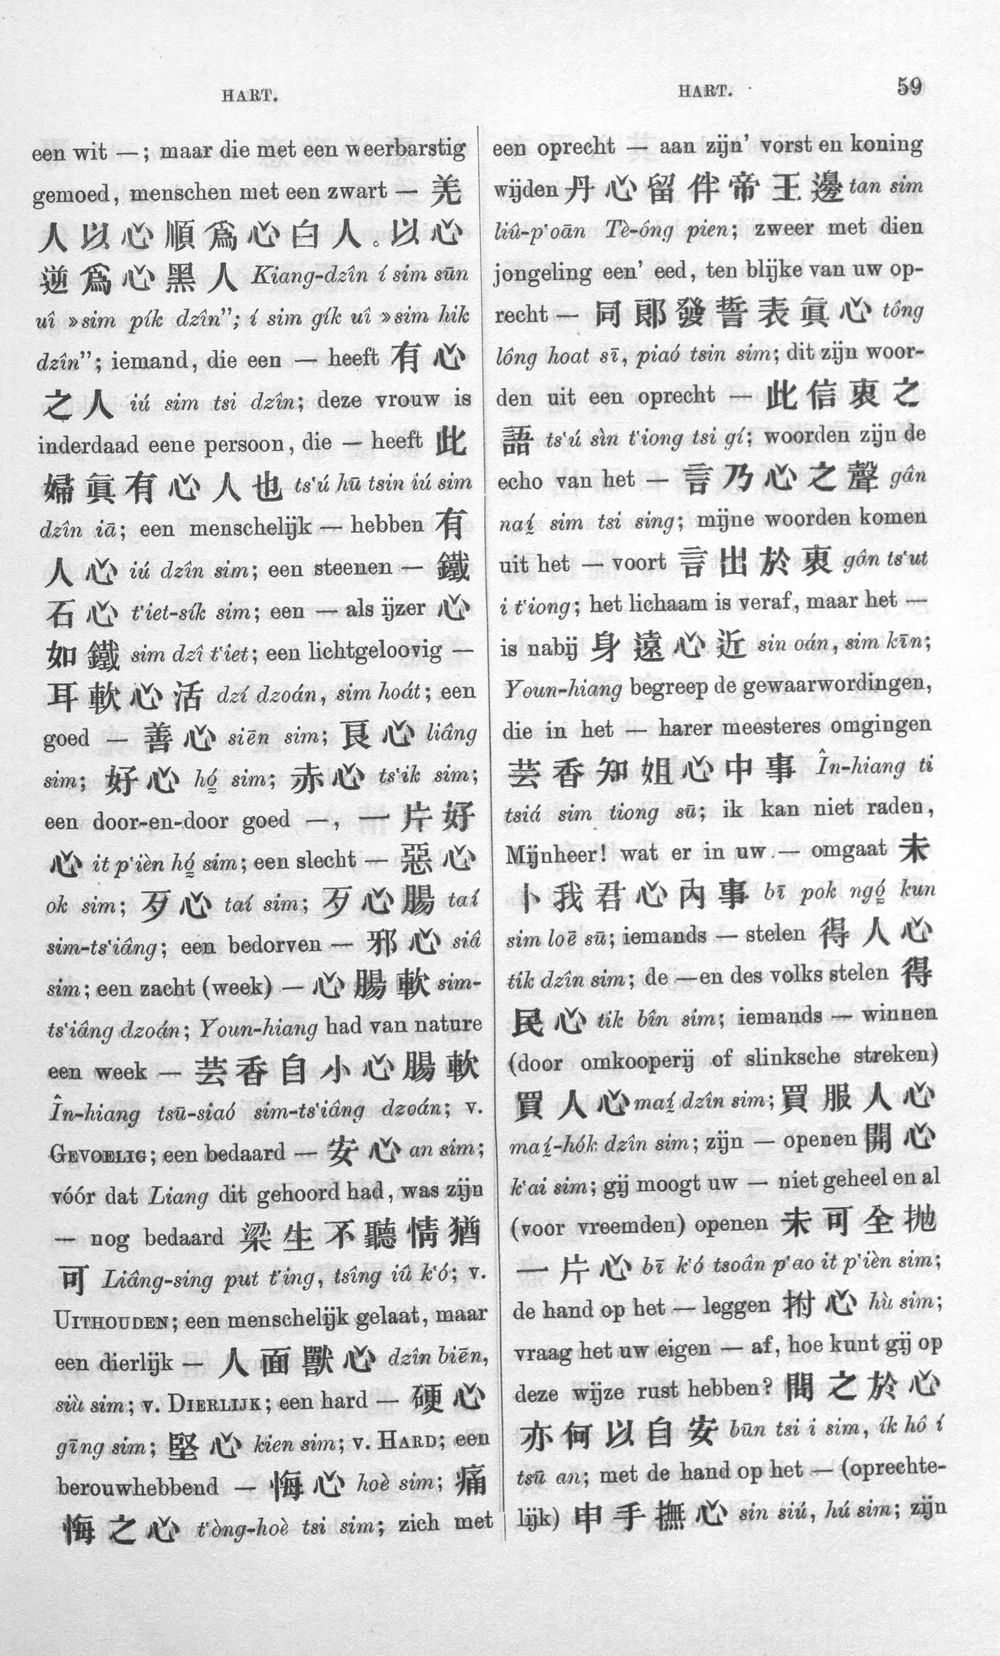 HART.
een wit —; maar die met een weerbarstig
gemoed, menschen met een zwart — 羌
人以心順爲心白人。以心
逆爲心黑人 Kiang-dzîn í sim sūn
uî »sim pík dzîn"; í sim gík uî »sim hik
dzîn"; iemand, die een — heeft 有心
之人 iú sim tsi dzîn; deze vrouw is
inderdaad eene persoon, die — heeft 此
婦眞有心人也 ts‘ú hū tsin iú sim
dzîn iā; een menschelijk — hebben 有
人心 iú dzîn sim; een steenen — 鐵
石心 t‘iet-sík sim; een — als ijzer 心
如鐵 sim dzî t‘iet; een lichtgeloovig —
耳軟心活 dzí dzoán, sim hoát; een
goed — 善心 siēn sim; 良心 liâng
sim; 好心 hó̤ sim; 赤心 ts‘ik sim;
een door-en-door goed —, 一片好
心 it p‘ièn hó̤ sim; een slecht — 惡心
ok sim; 歹心 taí sim; 歹心腸 taí
sim-ts‘iâng; een bedorven — 邪心 siâ
sim; een zacht (week) — 心腸軟 sim-
ts‘iâng dzoán; Youn-hiang had van nature
een week — 芸香自小心腸軟
În-hiang tsū-siaó sim-ts‘iâng dzoán; v.
GEVOELIG; een bedaard — 安心 an sim;
vóór dat Liang dit gehoord had, was zijn
— nog bedaard 梁生不聽情猶
可 Liâng-sing put t‘ing, tsîng iû k‘ó; v.
UITHOUDEN; een menschelijk gelaat, maar
een dierlijk — 人面獸心 dzîn biēn,
siù sim; v. DIERLIJK; een hard — 硬心
gīng sim; 堅心 kien sim; v. HARD; een
berouwhebbend — 悔心 hoè sim; 痛
悔之心 t‘òng-hoè tsi sim; zich met
HART.
59
een oprecht — aan zijn' vorst en koning
wijden 丹心留伴帝王邊 tan sim
liû-p‘oān Tè-óng pien; zweer met dien
jongeling een' eed, ten blijke van uw op-
recht — 同郞發誓表眞心 tông
lông hoat sī, piaó tsin sim; dit zijn woor-
den uit een oprecht — 此信衷之
語 ts‘ú sìn t‘iong tsi gí; woorden zijn de
echo van het — 言乃心之聲 gân
naí̤ sim tsi sing; mijne woorden komen
uit het — voort 言出於衷 gân ts‘ut
i t‘iong; het lichaam is veraf, maar het —
is nabij 身遠心近 sin oán, sim kīn;
Youn-hiang begreep de gewaarwordingen,
die in het — harer meesteres omgingen
芸香知姐心中事 În-hiang ti
tsiá sim tiong sū; ik kan niet raden,
Mijnheer! wat er in uw — omgaat 未
卜我君心內事 bī pok ngó̤ kun
sim loē sū; iemands — stelen 得人心
tik dzîn sim; de —en des volks stelen 得
民心 tik bîn sim; iemands — winnen
(door omkooperij of slinksche streken)
買人心 maí̤ dzîn sim; 買服人心
maí̤-hók dzîn sim; zijn — openen 開心
k‘ai sim; gij moogt uw — niet geheel en al
(voor vreemden) openen 未可全抛
一片心 bī k‘ó tsoân p‘ao it p‘ièn sim;
de hand op het — leggen 拊心 hù sim;
vraag het uw eigen — af, hoe kunt gij op
deze wijze rust hebben? 問之於心
亦何以自安 būn tsi i sim, ík hô í
tsū an; met de hand op het — (oprechte-
lijk) 申手撫心 sin siú, hú sim; zijn